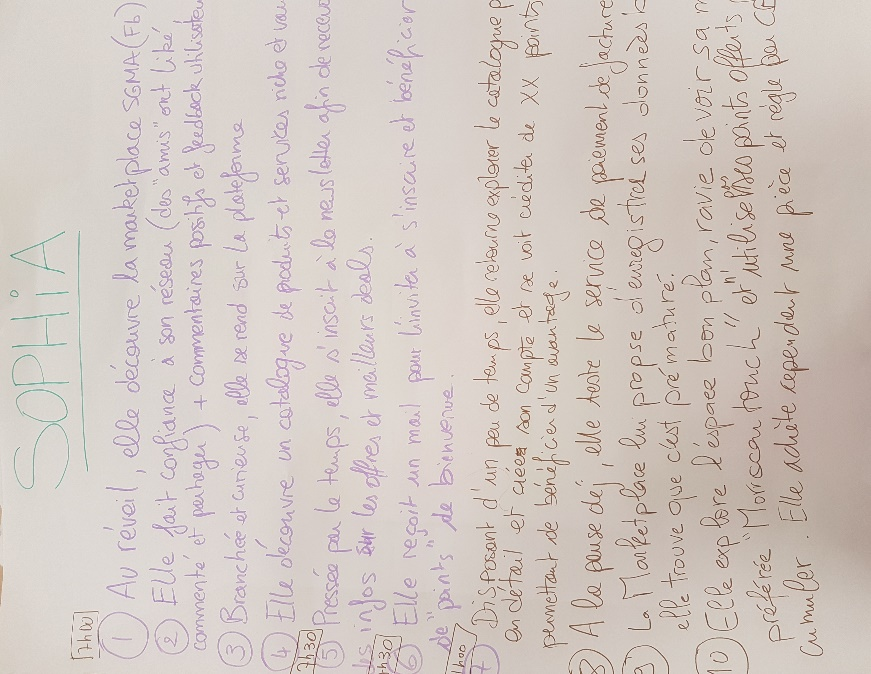 SOPHiA
7h00
1 Au réveil, elle découvre la marketplace SGMA (Fb)
2 Elle fait confiance à son réseau (des "amis" ont liké
commenté et partager) + commentaires positifs et feedback utilisateu
3 Branchée et curieuse, elle se rend sur la plateforme
4 Elle découvre un catalogue de produits et services riche et
7h30
5 Pressée par le temps, elle s'inscrit à la newsletter afin de recev
les infos sur les offres et meilleurs deals.
6 Elle reçoit un mail pour l'inviter à s'inscrire et bénéficier
de "points" de bienvenue.
7 Disposant d'un peu de temps, elle retourne explorer le catalogue p
en détail et créée son compte et se voit créditer de XX points
permettant de bénéficier d'un avantage.
8 A la pause dej, elle teste le service de paiement de facture
9 La Marketplace lui propose d'enregistrer ses données
elle trouve que c'est prématuré.
10 Elle explore l'espace bon plan, ravie de voir sa
préférée "Morrocan touch" et utilise ses points offerts
cumuler. Elle achète cependant une pièce et règle par